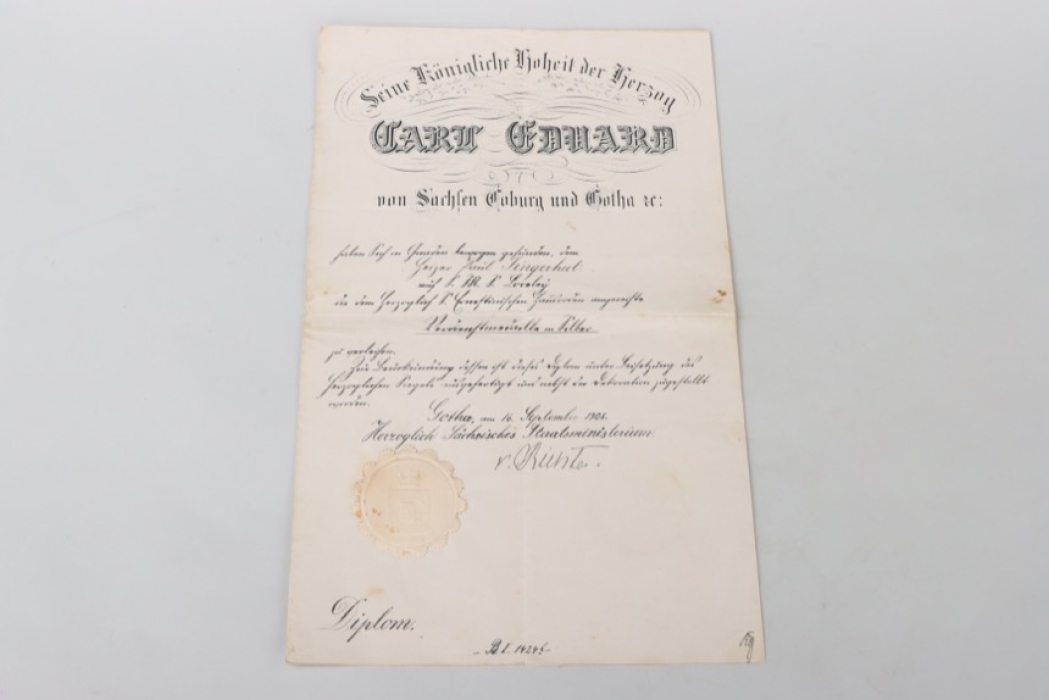 Seine Königliche Hoheit der Herzog
CARL EDUARD
von Sachsen Coburg und Gotha ꝛc:
haben Sich in Gnaden bewogen gefunden, dem
Heizer Paul Fingerhut
auf S. M. S. Loreley
die dem Herzoglich S. Ernestinischen Hausorden angereihte
Verdienstmedaille in Silber
zu verleihen.
Zur Beurkundung dessen ist dieses Diplom unter Beisetzung des
Herzoglichen Siegels ausgefertigt und nebst der Dekoration zugestellt
worden.
Gotha, am 16. September
Herzoglich Sächsisches Staatsministerium.
v. Richter.
Diplom.